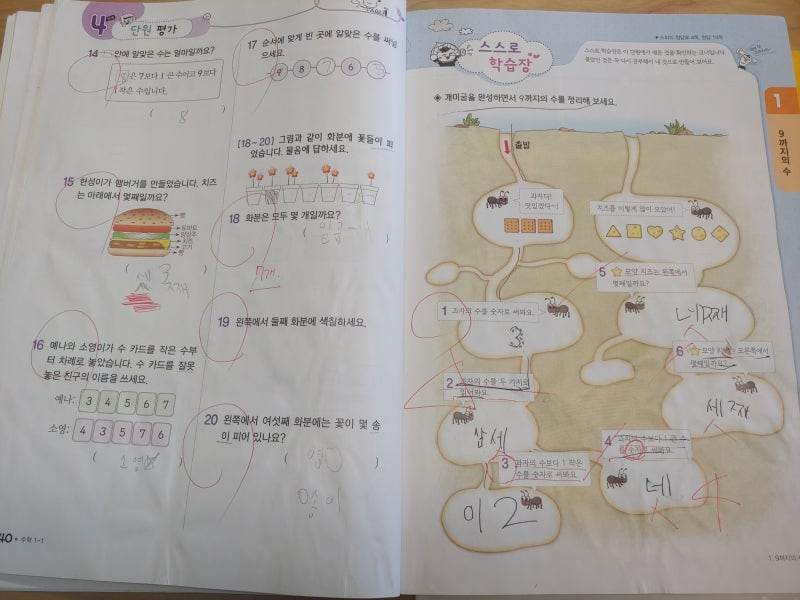 4 단원 평가
14 □ 안에 알맞은 수는 얼마일까요?
은 7보다 1 큰 수이고 9보다
1 작은 수입니다.
( 8 )
15 현성이가 햄버거를 만들었습니다. 치즈
는 아래에서 몇째일까요?
빵
토마토
양상추
치즈
고기
빵
( 세 3 째 )
16 예나와 소영이가 수 카드를 작은 수부
터 차례로 놓았습니다. 수 카드를 잘못
놓은 친구의 이름을 쓰세요.
예나: 3 4 5 6 7
소영: 4 3 5 7 6
( 소영 )
40 수학 1-1
17 순서에 맞게 빈 곳에 알맞은 수를 써넣
으세요.
9 8 7 6
[18~20] 그림과 같이 화분에 꽃들이 피
었습니다. 물음에 답하세요.
18 화분은 모두 몇 개일까요?
( 일곱 )
7개.
19 왼쪽에서 둘째 화분에 색칠하세요.
20 왼쪽에서 여섯째 화분에는 꽃이 몇 송
이 피어 있나요?
( )
스스로
학습장
스피드 정답표 4쪽, 정답 19쪽
스스로 학습장은 이 단원에서 배운 것을 확인하는 코너입니다.
몰랐던 것은 꼭 다시 공부해서 내 것으로 만들어 보아요.
개미굴을 완성하면서 9까지의 수를 정리해 보세요.
출발
과자다!
맛있겠다~!
치즈를 이렇게 많이 모았어!
5 모양 치즈는 왼쪽에서
몇째일까요?
네째
1 과자의 수를 숫자로 써봐요.
3
6 모양 치즈는 오른쪽에서
몇째일까요?
세째
2 과자의 수를 두 가지로
읽어봐요.
삼 세
4 과자의 수보다 1 큰 수
를 숫자로 써봐요.
네 4
3 과자의 수보다 1 작은
수를 숫자로 써봐요.
이 2
1
9까지의 수
1. 9까지의